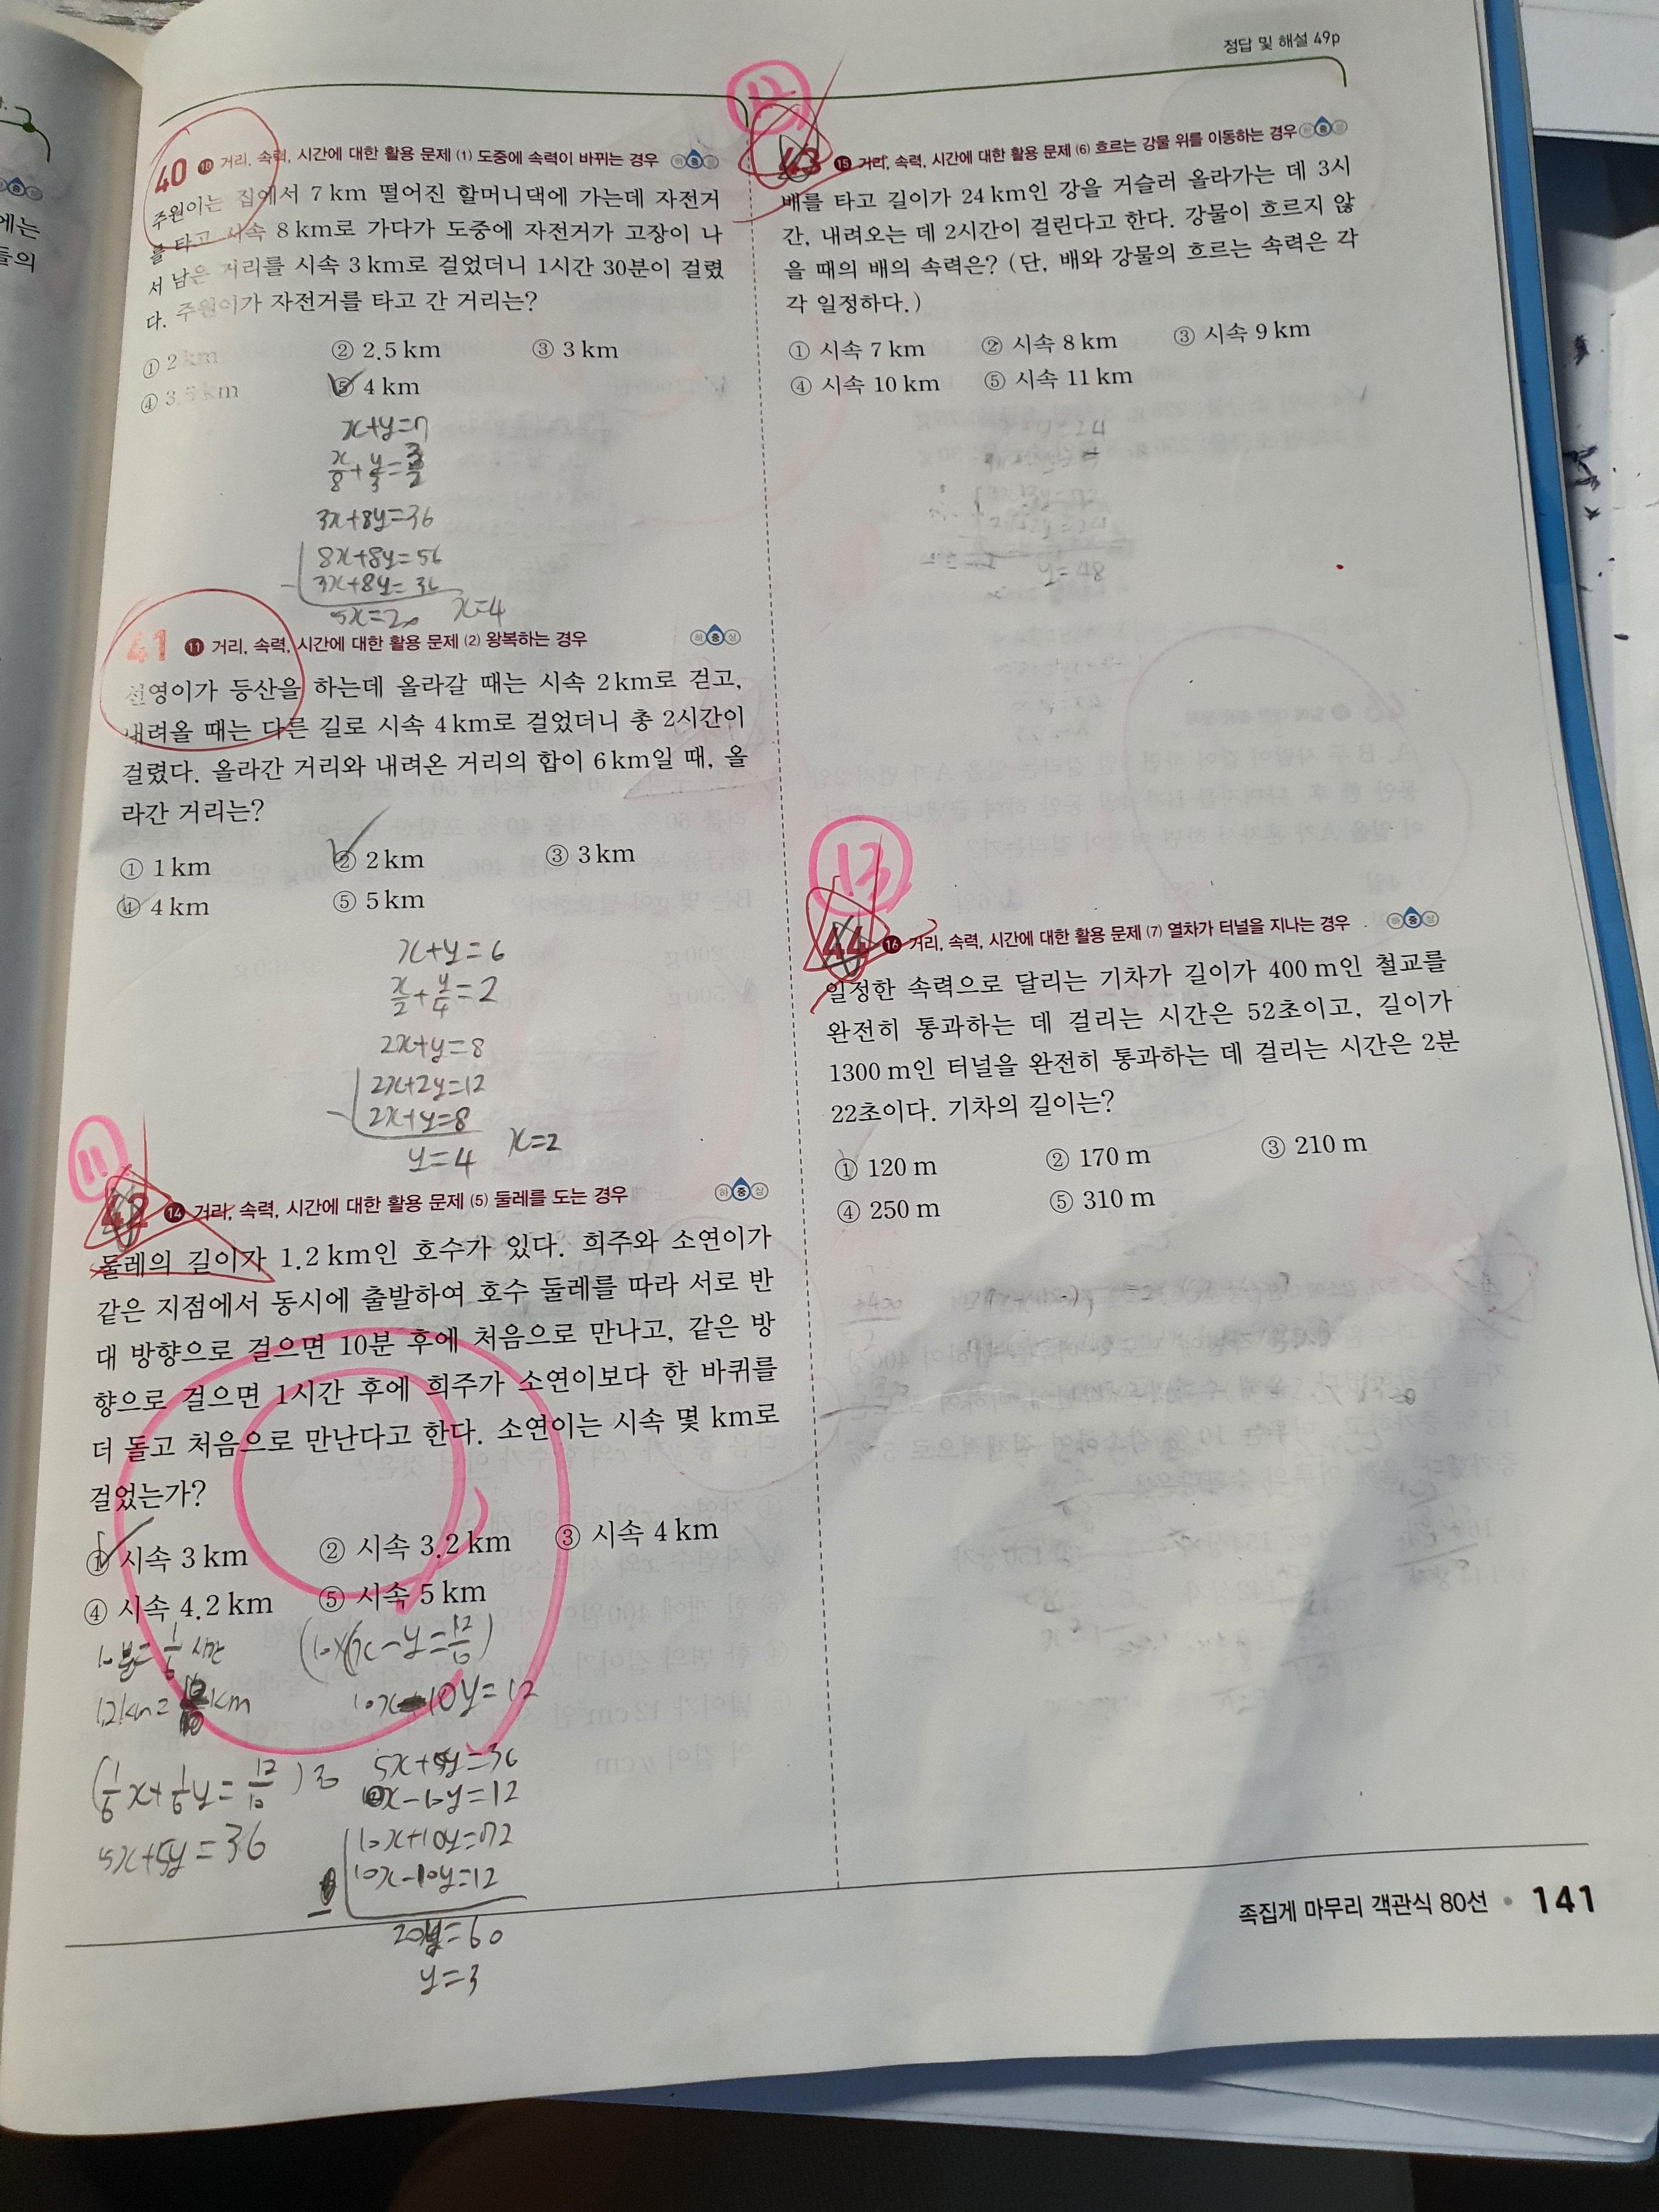 정답 및 해설 49p
40 10 거리, 속력, 시간에 대한 활용 문제 (1) 도중에 속력이 바뀌는 경우 하 중 상
주원이는 집에서 7 km 떨어진 할머니댁에 가는데 자전거
를 타고 시속 8 km로 가다가 도중에 자전거가 고장이 나
서 남은 거리를 시속 3 km로 걸었더니 1시간 30분이 걸렸
다. 주원이가 자전거를 타고 간 거리는?
① 2 km ② 2.5 km ③ 3 km
④ 3.5 km ⑤ 4 km
x+y=7
x/8+y/3=3/2
3x+8y=36
8x+8y=56
3x+8y=36
5x=20 x=4
41 11 거리, 속력, 시간에 대한 활용 문제 (2) 왕복하는 경우 하 중 상
영이가 등산을 하는데 올라갈 때는 시속 2 km로 걷고,
내려올 때는 다른 길로 시속 4 km로 걸었더니 총 2시간이
걸렸다. 올라간 거리와 내려온 거리의 합이 6 km일 때, 올
라간 거리는?
① 1 km ② 2 km ③ 3 km
④ 4 km ⑤ 5 km
x+y=6
x/2+y/4=2
2x+y=8
2x+2y=12
2x+y=8
y=4 x=2
11
42 14 거리, 속력, 시간에 대한 활용 문제 (5) 둘레를 도는 경우 하 중 상
둘레의 길이가 1.2 km인 호수가 있다. 희주와 소연이가
같은 지점에서 동시에 출발하여 호수 둘레를 따라 서로 반
대 방향으로 걸으면 10분 후에 처음으로 만나고, 같은 방
향으로 걸으면 1시간 후에 희주가 소연이보다 한 바퀴를
더 돌고 처음으로 만난다고 한다. 소연이는 시속 몇 km로
걸었는가?
① 시속 3 km ② 시속 3.2 km ③ 시속 4 km
④ 시속 4.2 km ⑤ 시속 5 km
10분=1/6시간
(1/6x+1/6y=12/10)
5x+5y=36
10x-10y=12
5x+5y=36
10x-10y=12
10x+10y=72
10x-10y=12
20y=60
y=3
12
43 15 거리, 속력, 시간에 대한 활용 문제 (6) 흐르는 강물 위를 이동하는 경우 하 중 상
배를 타고 길이가 24 km인 강을 거슬러 올라가는 데 3시
간, 내려오는 데 2시간이 걸린다고 한다. 강물이 흐르지 않
을 때의 배의 속력은? (단, 배와 강물의 흐르는 속력은 각
각 일정하다.)
① 시속 7 km ② 시속 8 km ③ 시속 9 km
④ 시속 10 km ⑤ 시속 11 km
13
44 16 거리, 속력, 시간에 대한 활용 문제 (7) 열차가 터널을 지나는 경우 하 중 상
일정한 속력으로 달리는 기차가 길이가 400 m인 철교를
완전히 통과하는 데 걸리는 시간은 52초이고, 길이가
1300 m인 터널을 완전히 통과하는 데 걸리는 시간은 2분
22초이다. 기차의 길이는?
① 120 m ② 170 m ③ 210 m
④ 250 m ⑤ 310 m
족집게 마무리 객관식 80선 • 141